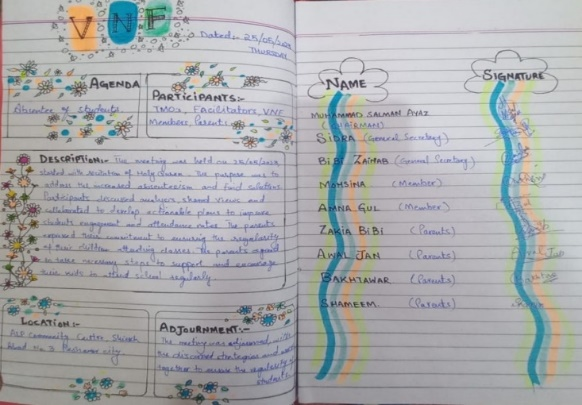 VNF
Dated:- 25/05/
THURSDAY
AGENDA
Absentee of students.
PARTICIPANTS:-
TMOs, Facilitators, VNF
Members, Parents
DESCRIPTION:- The meeting was held on 25/05/
started with recitation of Holy Quran. The purpose was to
address the increased absenteeism and find solutions.
Participants discussed analysis, shared views and
collaborated to develop actionable plans to improve
students engagement and attendance rates. The parents
expressed their commitment to ensuring the regularity
of their children attending classes. The parents agreed
to take necessary steps to support and encourage
their kids to attend school regularly.
LOCATION:-
ALP Community Centre,
Road No 3 Peshawar city
ADJOURNMENT:-
The meeting was adjourned with
the discussed strategies and
together to ensure the regularity of
students
NAME
SIGNATURE
MUHAMMAD SALMAN AYAZ
(CHAIRMAN)
SIDRA (General Secretary)
BIBI ZAINAB (General Secretary)
MOHSINA (Member)
AMNA GUL (Member)
ZAKIA BIBI (Parents)
AWAL JAN (Parents)
BAKHTAWAR (Parents)
SHAMEEM (Parents)